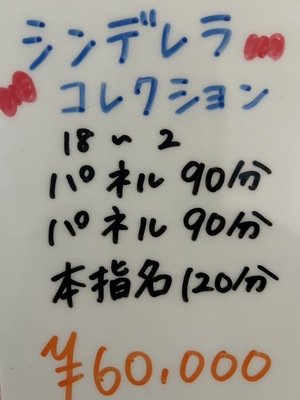 シンデレラ
コレクション
18〜2
パネル 90分
パネル 90分
本指名 120分
¥60,000